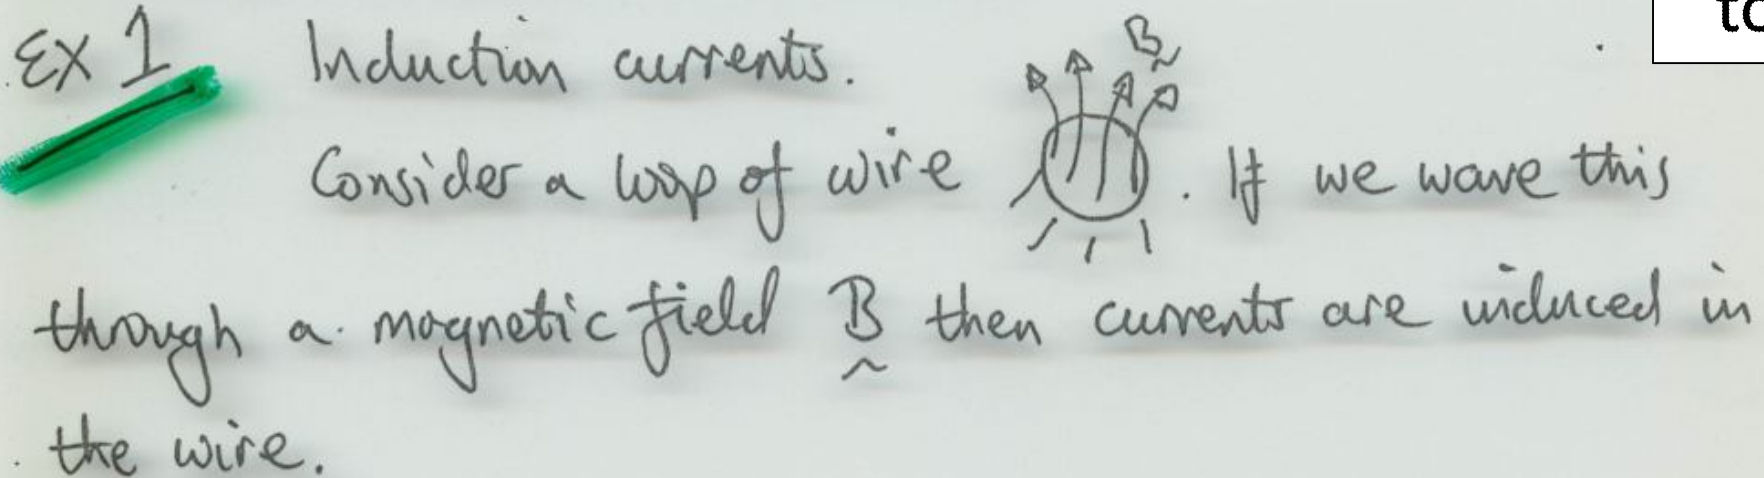 Ex 1 Induction currents.
B
to
Consider a loop of wire . If we wave this
through a magnetic field B then currents are induced in
the wire.